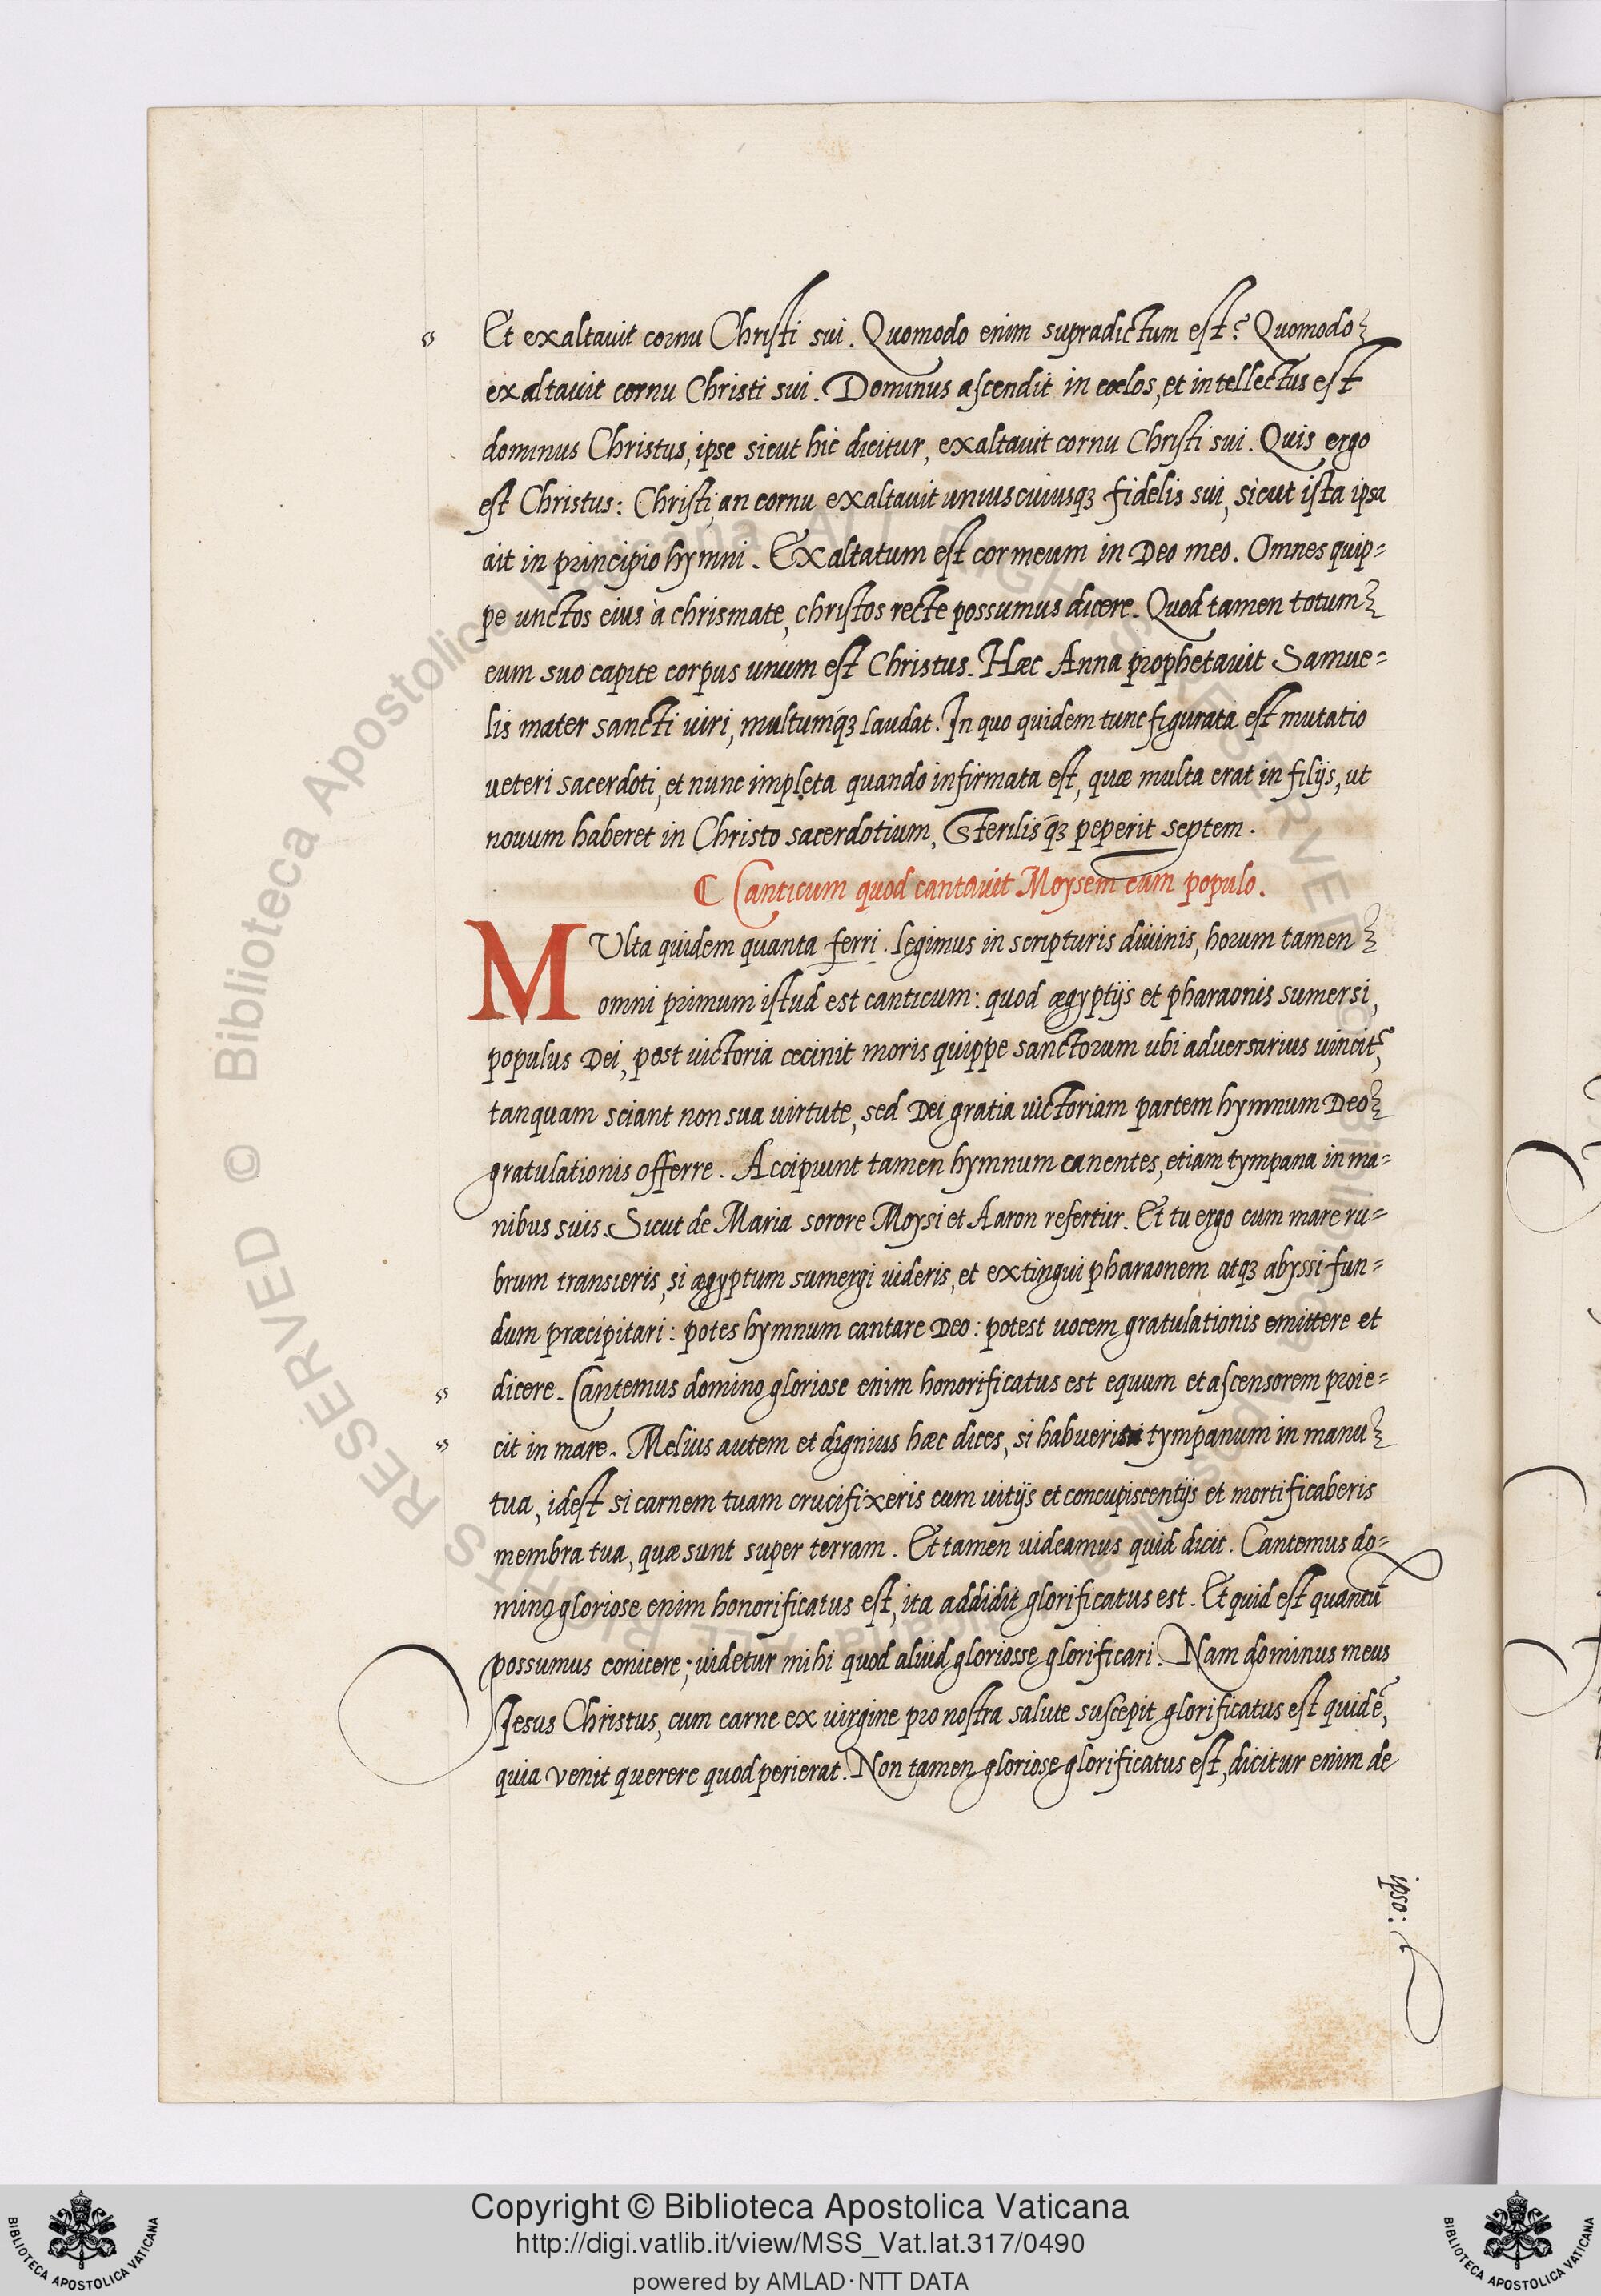 Et exaltauit cornu Christi sui. Quomodo enim supradictum est? Quomodo
exaltauit cornu Christi sui. Dominus ascendit in cœlos, et intellectus est
dominus Christus, ipse sicut hic dicitur, exaltauit cornu Christi sui. Quis ergo
est Christus: Christi, an cornu exaltauit uniuscuiusqꝫ fidelis sui, sicut ista ipsa
ait in principio hymni. Exaltatum est cor meum in Deo meo. Omnes quip=
pe unctos eius à chrismate, christos recte possumus dicere. Quod tamen totum
eum suo capite corpus unum est Christus. Hæc Anna prophetauit Samue=
lis mater sancti uiri, multumqꝫ laudat. In quo quidem tunc figurata est mutatio
ueteri sacerdoti, et nunc impleta quando infirmata est, quæ multa erat in filijs, ut
nouum haberet in Christo sacerdotium, Sterilisqꝫ peperit septem.
¶ Canticum quod cantauit Moysem cum populo.
MUlta quidem quanta ferri. legimus in scripturis diuinis, horum tamen
omni primum istud est canticum: quod ægyptijs et pharaonis sumersi,
populus Dei, post uictoria cecinit moris quippe sanctorum ubi aduersarius uincit,
tanquam sciant non sua uirtute, sed Dei gratia uictoriam partem hymnum Deo
gratulationis offerre. Accipiunt tamen hymnum canentes, etiam tympana in ma=
nibus suis. Sicut de Maria sorore Moysi et Aaron refertur. Et tu ergo cum mare ru=
brum transieris, si ægyptum sumergi uideris, et extingui pharaonem atqꝫ abyssi fun=
dum præcipitari: potes hymnum cantare Deo: potest uocem gratulationis emittere et
dicere. Cantemus domino gloriose enim honorificatus est equum et ascensorem proie=
cit in mare. Melius autem et dignius hæc dices, si habueris tympanum in manu
tua, idest si carnem tuam crucifixeris cum uitijs et concupiscentijs et mortificaberis
membra tua, quæ sunt super terram. Et tamen uideamus quid dicit. Cantemus do=
mino gloriose enim honorificatus est, ita addidit glorificatus est. Et quid est quantū
possumus conicere; uidetur mihi quod aliud gloriosse glorificari. Nam dominus meus
Jesus Christus, cum carne ex uirgine pro nostra salute suscepit glorificatus est quidē,
quia venit querere quod perierat. Non tamen gloriose glorificatus est, dicitur enim de
ipso:
© Biblioteca Apostolica Vaticana ALL RIGHTS RESERVED
Copyright © Biblioteca Apostolica Vaticana
http://digi.vatlib.it/view/MSS_Vat.lat.317/0490
powered by AMLAD·NTT DATA
BIBLIOTECA APOSTOLICA VATICANA
BIBLIOTECA APOSTOLICA VATICANA